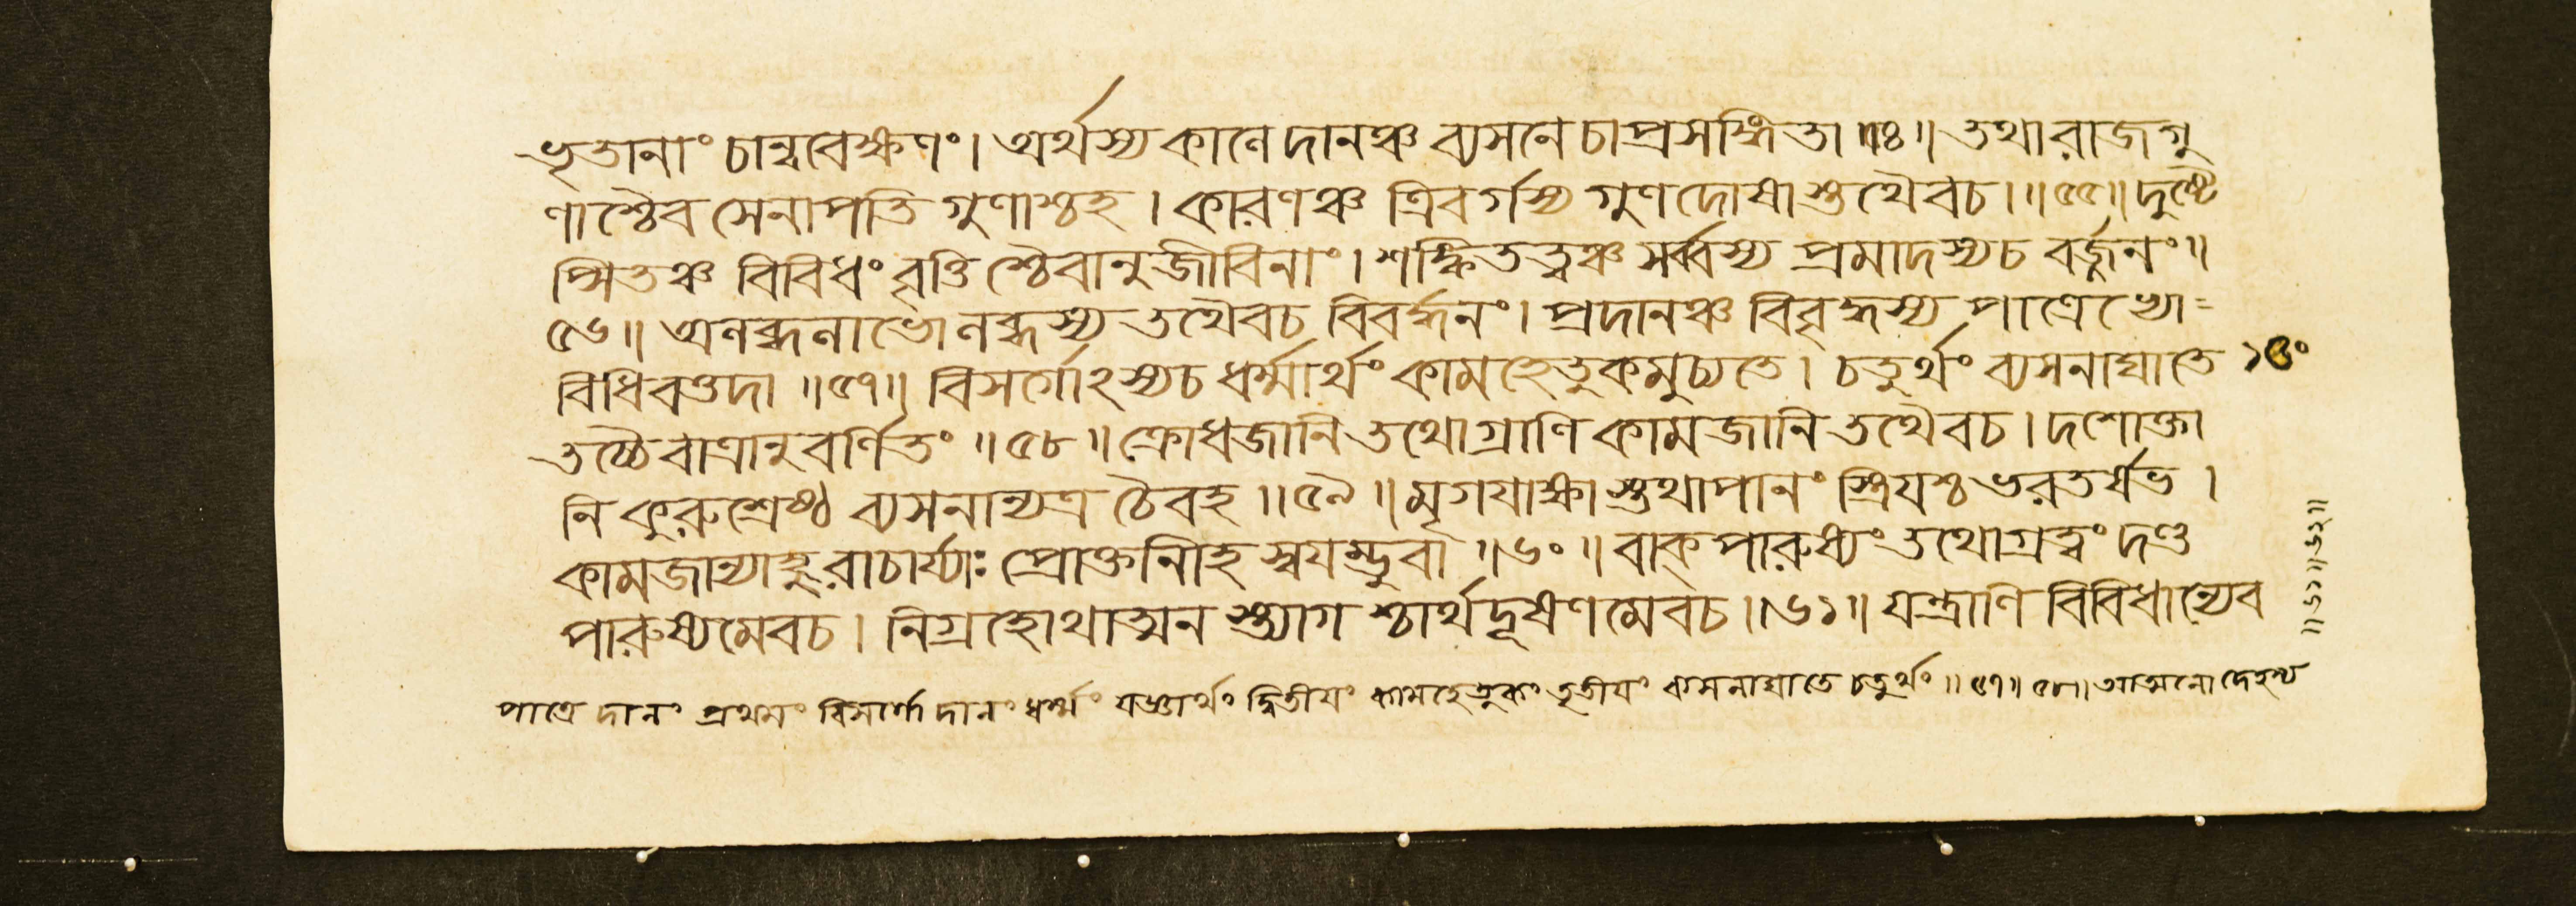 ভৃতানাং চান্ববেক্ষণং। অর্থস্য কালে দানঞ্চ ব্যসনে চাপ্রসঙ্গিতা ॥৫৪॥ তথা রাজগু
ণাশ্চৈব সেনাপতি গুণাশ্চহ । কারণঞ্চ ত্রিবর্গস্য গুণদোষাস্তথৈবচ।॥৫৫॥ দুশ্চে
ষ্টিতঞ্চ বিবিধং বৃত্তিশ্চৈবানুজীবিনাং। শঙ্কিতত্ত্বঞ্চ সর্ব্বস্য প্রমাদস্যচ বর্জ্জনং॥
৫৬॥ অলব্ধলাভোলব্ধস্য তথৈবচ বিবর্দ্ধনং। প্রদানঞ্চ বিবৃদ্ধস্য পাত্রেভ্যো=
বিধিবত্তদা ॥৫৭॥ বিসর্গোঽস্যচ ধর্ম্মার্থং কামহেতুকমুচ্যতে। চতুর্থং ব্যসনাঘাতে
তচ্চৈবাত্রানুবর্ণিতং ॥৫৮॥ ক্রোধজানি তথোগ্রাণি কামজানি তথৈবচ। দশোক্তা
নি কুরুশ্রেষ্ঠ ব্যসনান্যত্র চৈবহ ॥৫৯॥ মৃগযাক্ষাস্তথাপানং স্ত্রিযশ্চ ভরতর্ষভ ।
কামজান্যাহুরাচার্য্যাঃ প্রোক্তানিহ স্বযম্ভুবা ॥৬০॥ বাক্পারুষ্যং তথোগ্রত্বং দণ্ড
পারুষ্যমেবচ। নিগ্রহোথাত্মনস্ত্যাগ শ্চার্থদূষণমেবচ॥৬১॥ যন্ত্রাণি বিবিধান্যেব
পাত্রে দানং প্রথমং বিসর্গো দানং ধর্ম্মং যজ্ঞার্থং দ্বিতীযং কামহেতুকং তৃতীযং ব্যসনাঘাতে চতুর্থং ॥৫৭॥৫৮॥ আত্মনো দেহস্য
॥৬১॥৬২॥